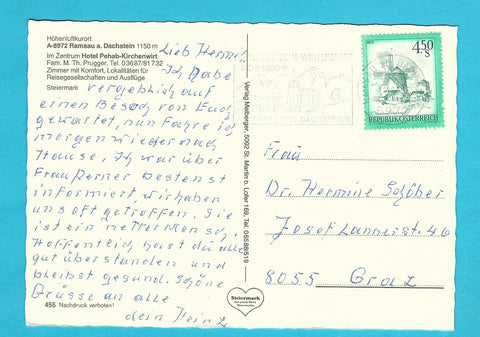 Höhenluftkurort
A-8972 Ramsau a. Dachstein 1150 m
Im Zentrum Hotel Pehab-Kirchenwirt
Fam. M. Th. Prugger, Tel. 03687/81732
Zimmer mit Komfort, Lokalitäten für
Reisegesellschaften und Ausflüge
Steiermark
Lieb Hermi!
Ich habe
vergeblich auf
einen Besuch von Euch
gewartet, nun fahre ich
morgen wieder nach
Hause. Ich war über
Frau Perner bestenst
informiert, wir haben
uns oft getroffen. Sie
ist ein netter Mensch.
Hoffentlich hast du alles
gut überstanden und
bleibst gesund. Schöne
Grüsse an alle
dein Heinz
455 Nachdruck verboten!
Verlag Meiberger, 5092 St. Martin b. Lofer 169, Tel. 06588/519
Steiermark
4,50
S
REPUBLIK ÖSTERREICH
Frau
Dr. Hermine Schöber
Josef Lannerstr. 46
8055 Graz